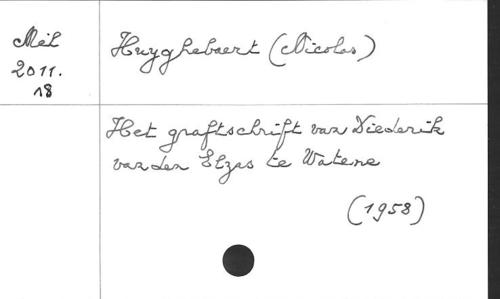 Mél
2011.
18
Huyghebaert (Nicolas)
Het graftschrift van Diederik
van den Elzas te Watene
(1958)